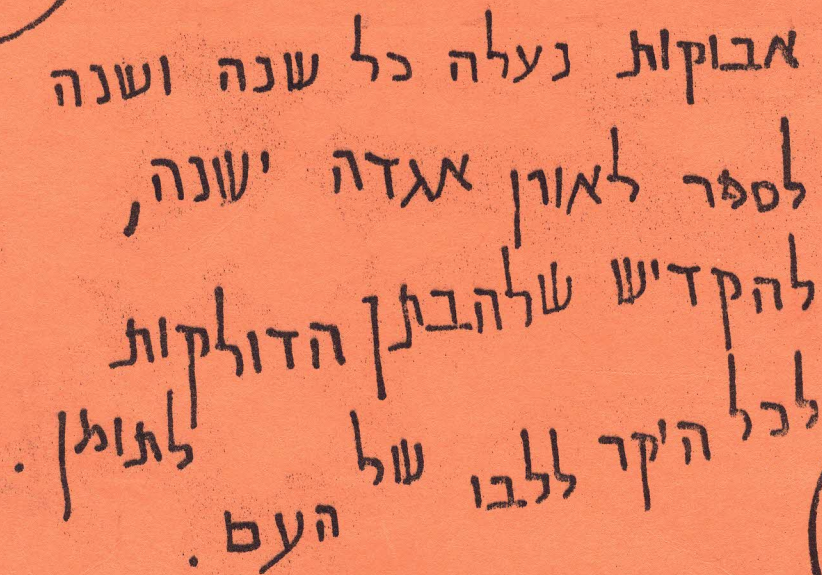 אבוקות נעלה כל שנה ושנה
לספר לאורן אגדה ישנה,
להקדיש שלהבתן הדולקות
לכל היקר ללבו של
העם.